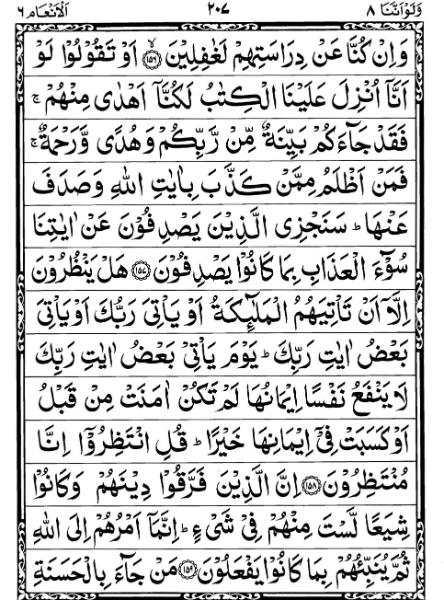 وَلَوْاَنَّنَا ٨ ٢٠٧ اَلْاَنْعَام ٦
وَاِنْ كُنَّا عَنْ دِرَاسَتِهِمْ لَغٰفِلِيْنَ ﴿۱۵۶﴾ اَوْ تَقُوْلُوْا لَوْ
اَنَّاۤ اُنْزِلَ عَلَيْنَا الْكِتٰبُ لَكُنَّاۤ اَهْدٰى مِنْهُمْ ۚ
فَقَدْ جَآءَكُمْ بَيِّنَةٌ مِّنْ رَّبِّكُمْ وَهُدًى وَّرَحْمَةٌ ۚ
فَمَنْ اَظْلَمُ مِمَّنْ كَذَّبَ بِاٰيٰتِ اللّٰهِ وَصَدَفَ
عَنْهَا ؕ سَنَجْزِى الَّذِيْنَ يَصْدِفُوْنَ عَنْ اٰيٰتِنَا
سُوْٓءَ الْعَذَابِ بِمَا كَانُوْا يَصْدِفُوْنَ ﴿۱۵۷﴾ هَلْ يَنْظُرُوْنَ
اِلَّاۤ اَنْ تَاْتِيَهُمُ الْمَلٰٓئِكَةُ اَوْ يَاْتِىَ رَبُّكَ اَوْيَاْتِىَ
بَعْضُ اٰيٰتِ رَبِّكَ ؕ يَوْمَ يَاْتِىْ بَعْضُ اٰيٰتِ رَبِّكَ
لَا يَنْفَعُ نَفْسًا اِيْمَانُهَا لَمْ تَكُنْ اٰمَنَتْ مِنْ قَبْلُ
اَوْكَسَبَتْ فِىْۤ اِيْمَانِهَا خَيْرًا ؕ قُلِ انْتَظِرُوْۤا اِنَّا
مُنْتَظِرُوْنَ ﴿۱۵۸﴾ اِنَّ الَّذِيْنَ فَرَّقُوْا دِيْنَهُمْ وَكَانُوْا
شِيَعًا لَّسْتَ مِنْهُمْ فِىْ شَىْءٍ ؕ اِنَّمَاۤ اَمْرُهُمْ اِلَى اللّٰهِ
ثُمَّ يُنَبِّئُهُمْ بِمَا كَانُوْا يَفْعَلُوْنَ ﴿۱۵۹﴾ مَنْ جَآءَ بِالْحَسَنَةِ